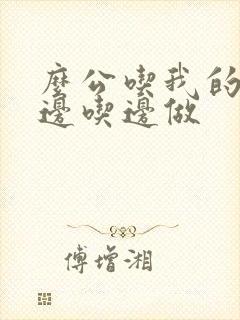 麽公喫我的
邊喫邊做
傅增湘